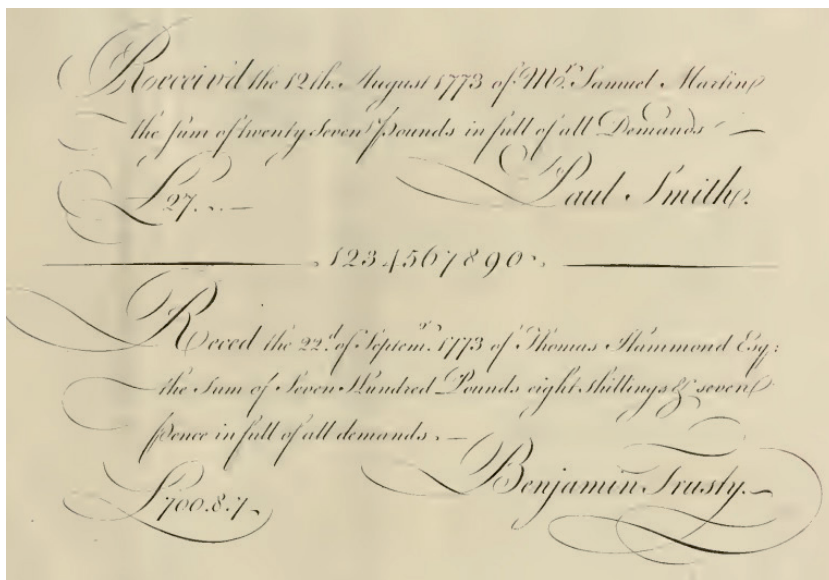 Receeiv'd the 12th. August 1773 of Mr. Samuel Martin
the sum of twenty Seven Pounds in full of all Demands —
£27. . . —
Paul Smith.
1234567890.
Reced the 22d. of Septemr. 1773 of Thomas Hammond Esq:
the Sum of Seven Hundred Pounds eight shillings & seven
pence in full of all demands. —
£700.8.7
Benjamin Trusty.